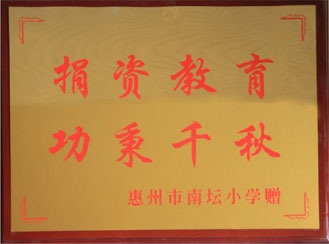 捐资教育
功秉千秋
惠州市南坛小学赠